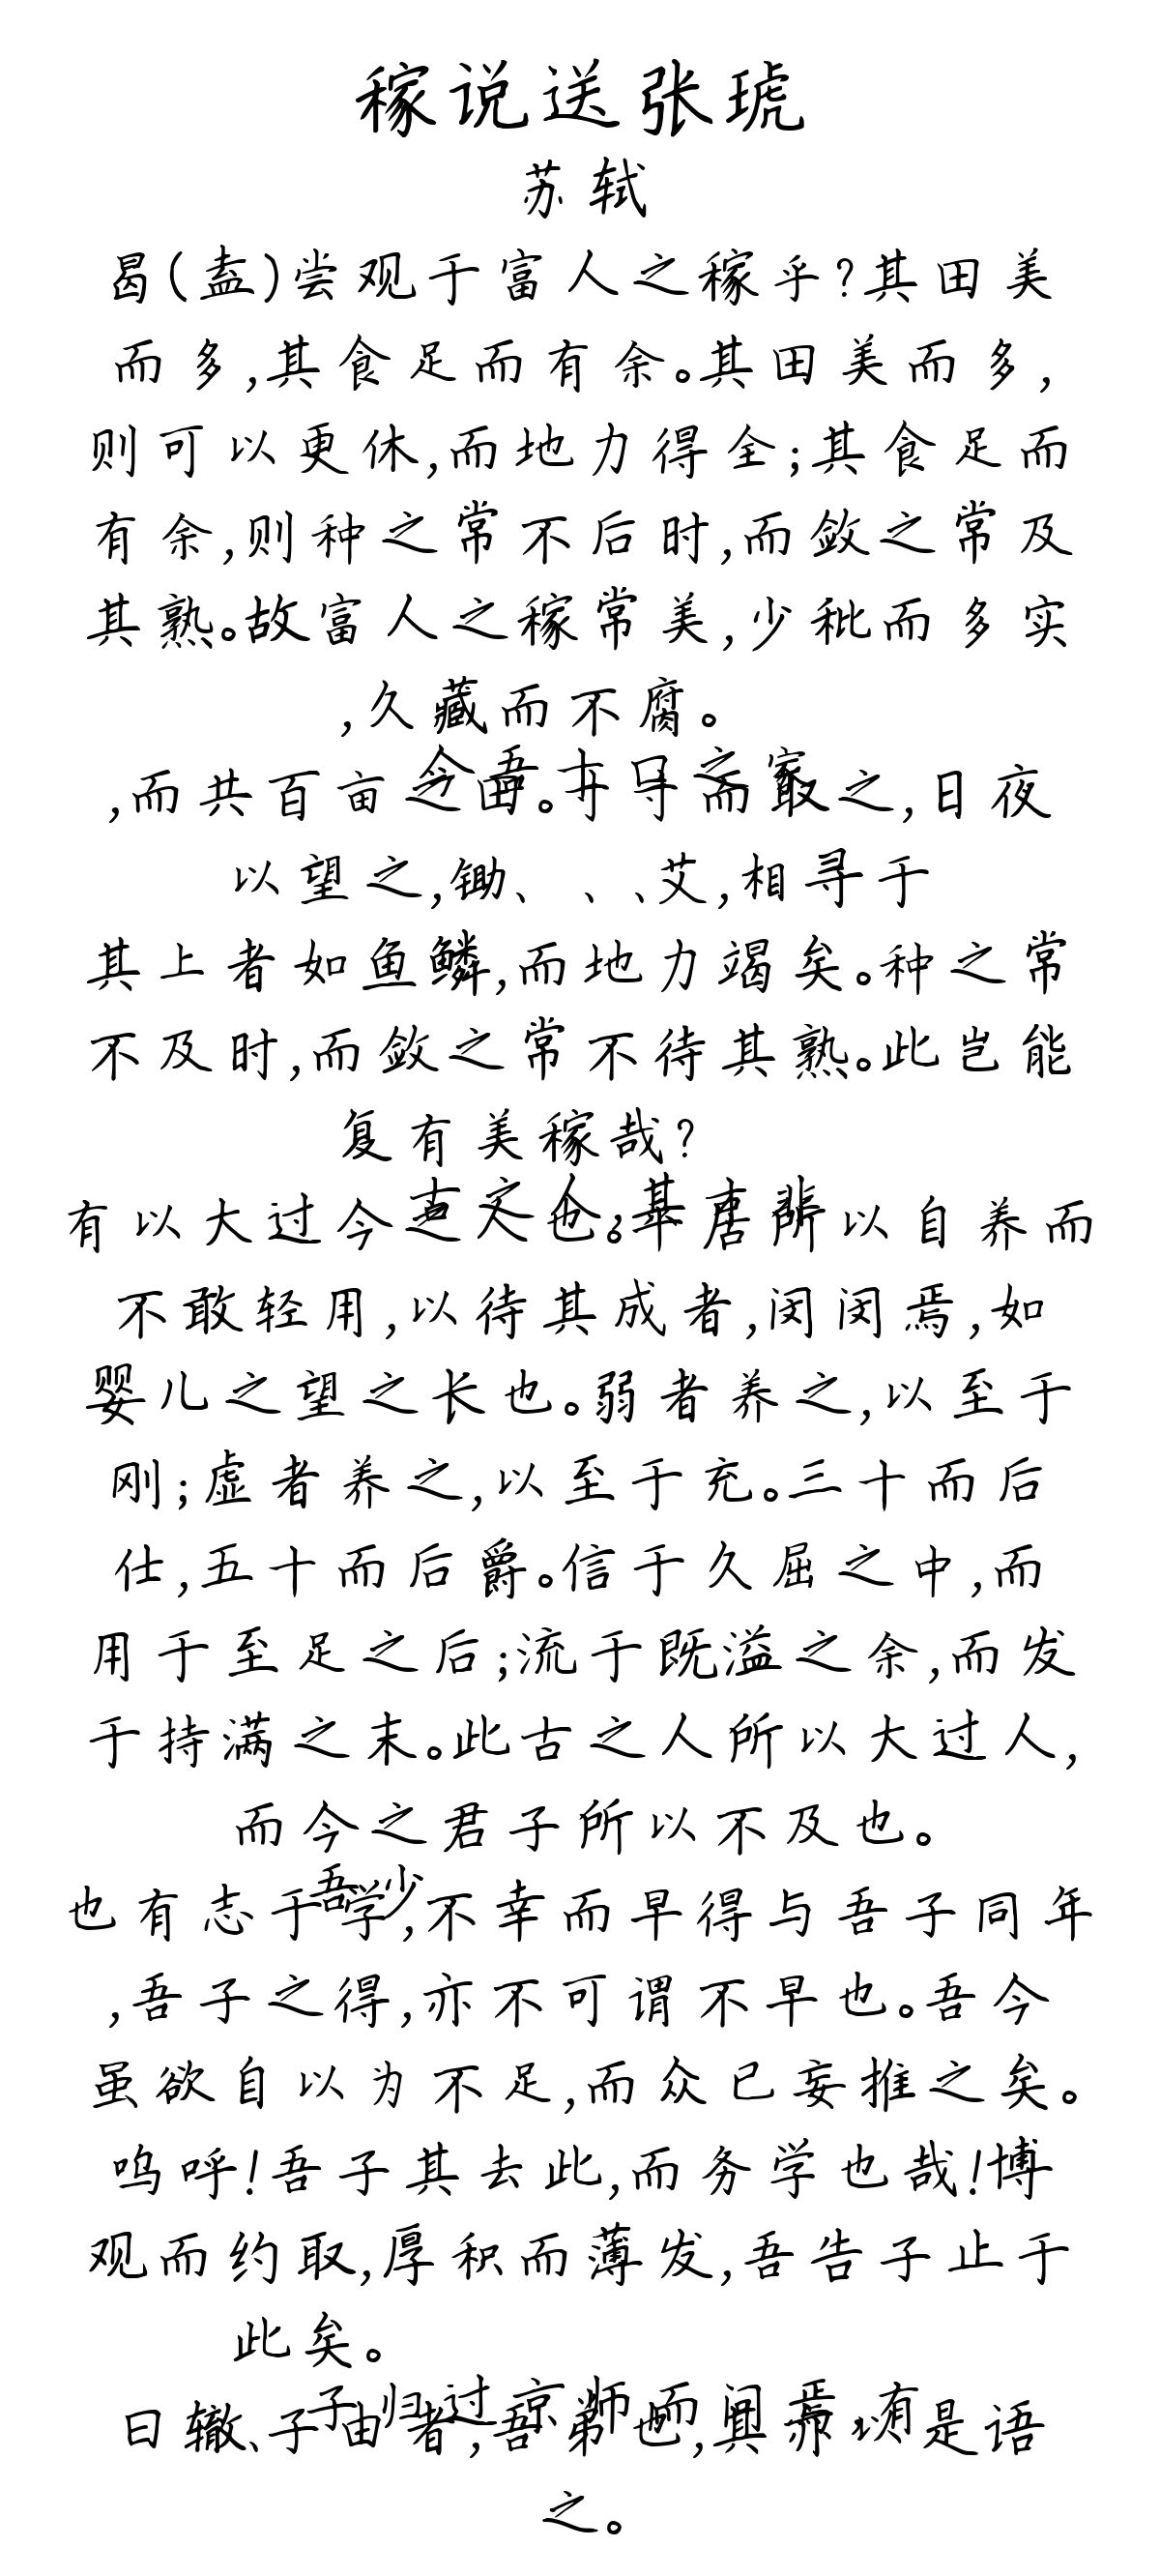 稼说送张琥
苏轼
曷(盍)尝观于富人之稼乎?其田美
而多,其食足而有余。其田美而多,
则可以更休,而地力得全;其食足而
有余,则种之常不后时,而敛之常及
其熟。故富人之稼常美,少秕而多实
,久藏而不腐。
今吾十口之家
,而共百亩之田。寸寸而取之,日夜
以望之,锄、、、艾,相寻于
其上者如鱼鳞,而地力竭矣。种之常
不及时,而敛之常不待其熟。此岂能
复有美稼哉?
古之人,其才非
有以大过今之人也。平居所以自养而
不敢轻用,以待其成者,闵闵焉,如
婴儿之望之长也。弱者养之,以至于
刚;虚者养之,以至于充。三十而后
仕,五十而后爵。信于久屈之中,而
用于至足之后;流于既溢之余,而发
于持满之末。此古之人所以大过人,
而今之君子所以不及也。
吾少
也有志于学,不幸而早得与吾子同年
,吾子之得,亦不可谓不早也。吾今
虽欲自以为不足,而众已妄推之矣。
呜呼!吾子其去此,而务学也哉!博
观而约取,厚积而薄发,吾告子止于
此矣。
子归过京师而问焉,有
曰辙、子由者,吾弟也,其亦以是语
之。